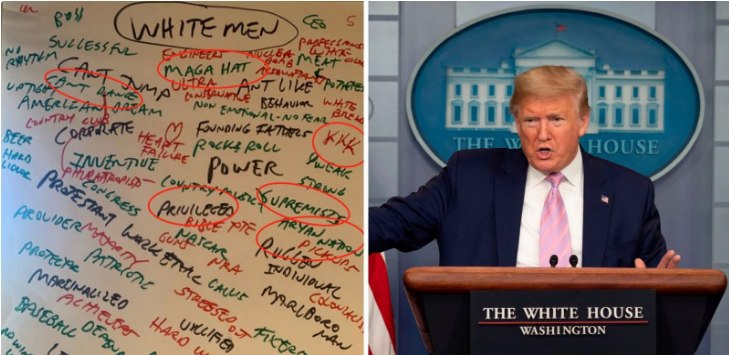 BOSS
CEO
S
WHITE MEN
NO
RHYTHM
SUCCESSFUL
ENGINEERS
NUCLEAR
BOMB
MEAT &
POTATOES
CAN'T JUMP
MAGA HAT
CAN'T DANCE
ULTRA
CONSERVATIVE
ANT LIKE
BEHAVIOR
WHITE
BREAD
AMERICAN DREAM
NON EMOTIONAL - NO FEAR
COUNTRY CLUB
CORPORATE
HEART
FAILURE
FOUNDING FATHERS
ROCK & ROLL
KKK
BEER
HARD
LIQUOR
INVENTIVE
PHILANTHROPIST
POWER
WEAK
STRONG
CONGRESS
COUNTRY MUSIC
PRIVILEGED
SUPREMISTS
ARYAN NATION
PROTESTANT WORK ETHIC
BIBLE
NASCAR
GUNS
NRA
RUGGED
INDIVIDUAL
PICKUPS
PROVIDER
MAJORITY
PATRIOTIC
PROTECTOR
MARGINALIZED
STRESSED OUT
MARLBORO
MAN
BASEBALL
HARD
FIXERS
THE WHITE HOUSE
WASHINGTON
THE WHITE HOUSE
WASHINGTON